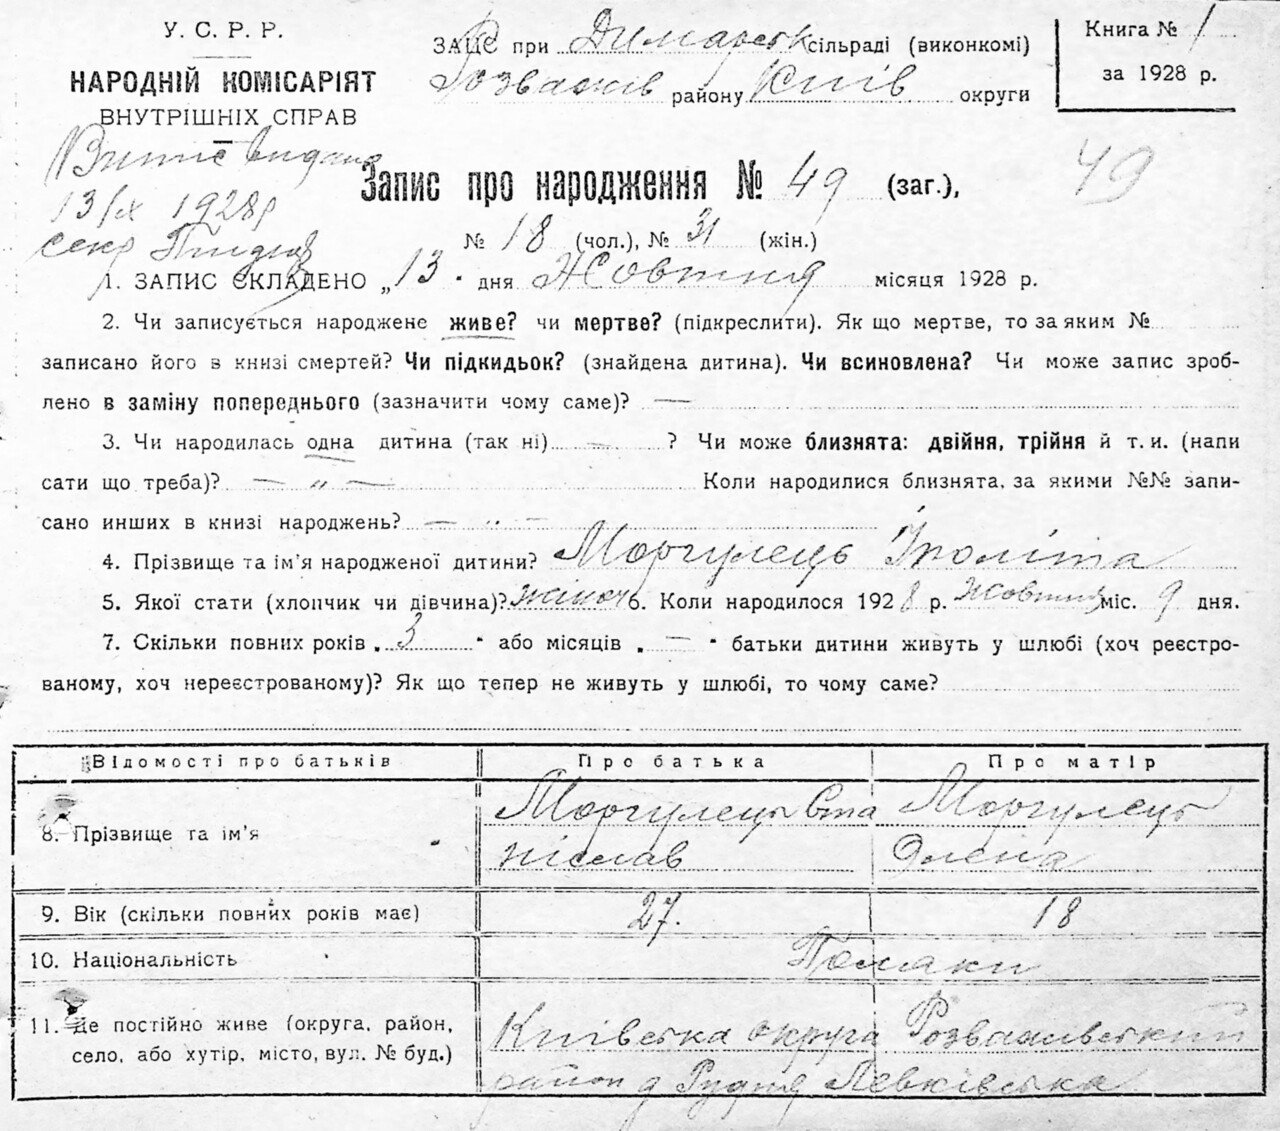 У. С. Р. Р.
НАРОДНІЙ КОМІСАРІЯТ
ВНУТРІШНІХ СПРАВ
ЗАЦС при Димарськ сільраді (виконкомі)
Розважів району Київ округи
Книга № 1
за 1928 р.
Випис видано
13/IX 1928р
секр
49
Запис про народження № 49 (заг.),
№ 18 (чол.), № 31 (жін.)
1. ЗАПИС СКЛАДЕНО „13" дня Жовтня місяця 1928 р.
2. Чи записується народжене живе? чи мертве? (підкреслити). Як що мертве, то за яким №
записано його в книзі смертей? Чи підкидьок? (знайдена дитина). Чи всиновлена? Чи може запис зроб-
лено в заміну попереднього (зазначити чому саме)? —
3. Чи народилась одна дитина (так ні) — ? Чи може близнята: двійня, трійня й т. и. (напи
сати що треба)? — „ — Коли народилися близнята, за якими №№ запи-
сано инших в книзі народжень? — „ —
4. Прізвище та ім'я народженої дитини? Моргулець Іполіта
5. Якої стати (хлопчик чи дівчина)? жіноч 6. Коли народилося 1928 р. Жовтня міс. 9 дня.
7. Скільки повних років „3" або місяців „—" батьки дитини живуть у шлюбі (хоч реєстро-
ваному, хоч нереєстрованому)? Як що тепер не живуть у шлюбі, то чому саме?
Відомості про батьків Про батька Про матір
8. Прізвище та ім'я Моргулець Ста Моргулець
ніслав Олена
9. Вік (скільки повних років має) 27. 18
10. Національність Поляки
11. Де постійно живе (округа, район, Київська округа Розважівський
село, або хутір, місто, вул. № буд.) район д Рудня Левківська